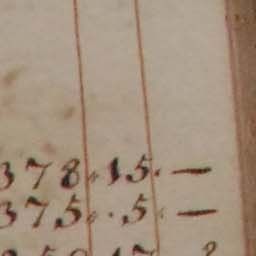 378.15.—
375..5.—